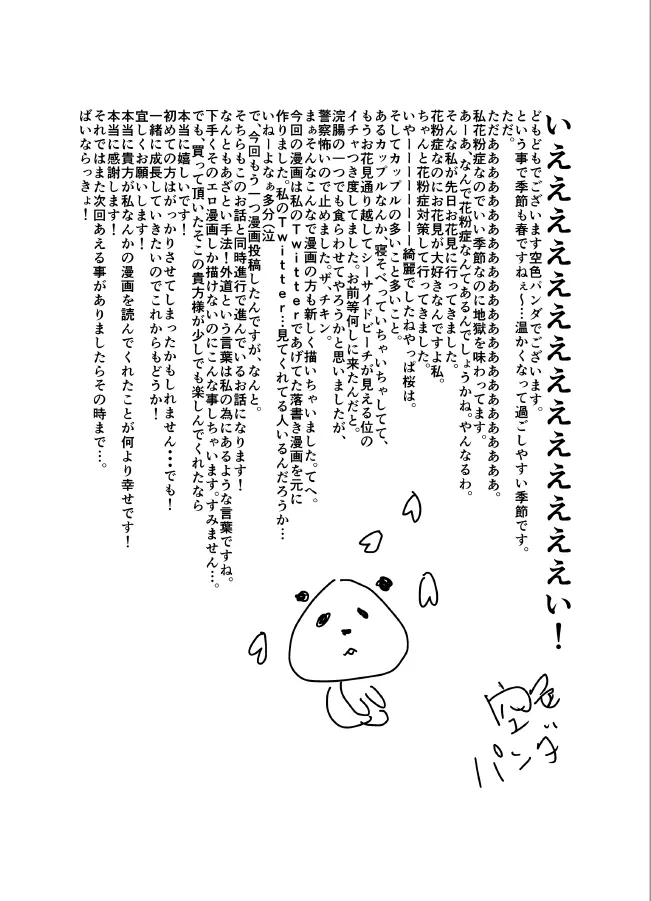 いええええええええええええええい！
どもどもでございます空色パンダでございます。
という事で季節も春ですねぇ～…温かくなって過ごしやすい季節です。
ただ。
ただあああああああああああああああああああああ。
私花粉症なのでいい季節なのに地獄を味わってます。
あーあ、なんで花粉症なんてあるんでしょうかね。やんなるわ。
そんな私が先日お花見に行ってきました。
花粉症なのにお花見が大好きなんですよ私。
ちゃんと花粉症対策して行ってきました。
いやーーーーーーー綺麗でしたねやっぱ桜は。
そしてカップルの多いこと多いこと。
あるカップルなんか、寝そべっていちゃいちゃしてて、
もうお花見通り越してシーサイドビーチが見える位の
イチャつき度してました。お前等何しに来たんだと。
浣腸の一つでも食らわせてやろうかと思いましたが、
警察怖いので止めました。ザ、チキン。
まぁそんなこんなで漫画の方も新しく描いちゃいました。てへ。
今回の漫画は私のＴｗｉｔｔｅｒであげてた落書き漫画を元に
作りました。私のＴｗｉｔｔｅｒ…見てくれてる人いるんだろうか…
いねーよなぁ多分（泣
で、今回もう一つ漫画投稿したんですが、なんと。
そちらもこのお話と同時進行で進んでいるお話になります！
なんともあざとい手法！外道という言葉は私の為にあるような言葉ですね。
下手くそのエロ漫画しか描けないのにこんな事しちゃいます。すみません…。
でも、買って頂いたそこの貴方様が少しでも楽しんでくれたなら
本当に嬉しいです！
初めての方はがっかりさせてしまったかもしれません・・・でも！
一緒に成長していきたいのでこれからもどうか！
宜しくお願いします！
本当に貴方が私なんかの漫画を読んでくれたことが何より幸せです！
本当に感謝します！
それではまた次回あえる事がありましたらその時まで…。
ばいならっきょ！
空色
パンダ